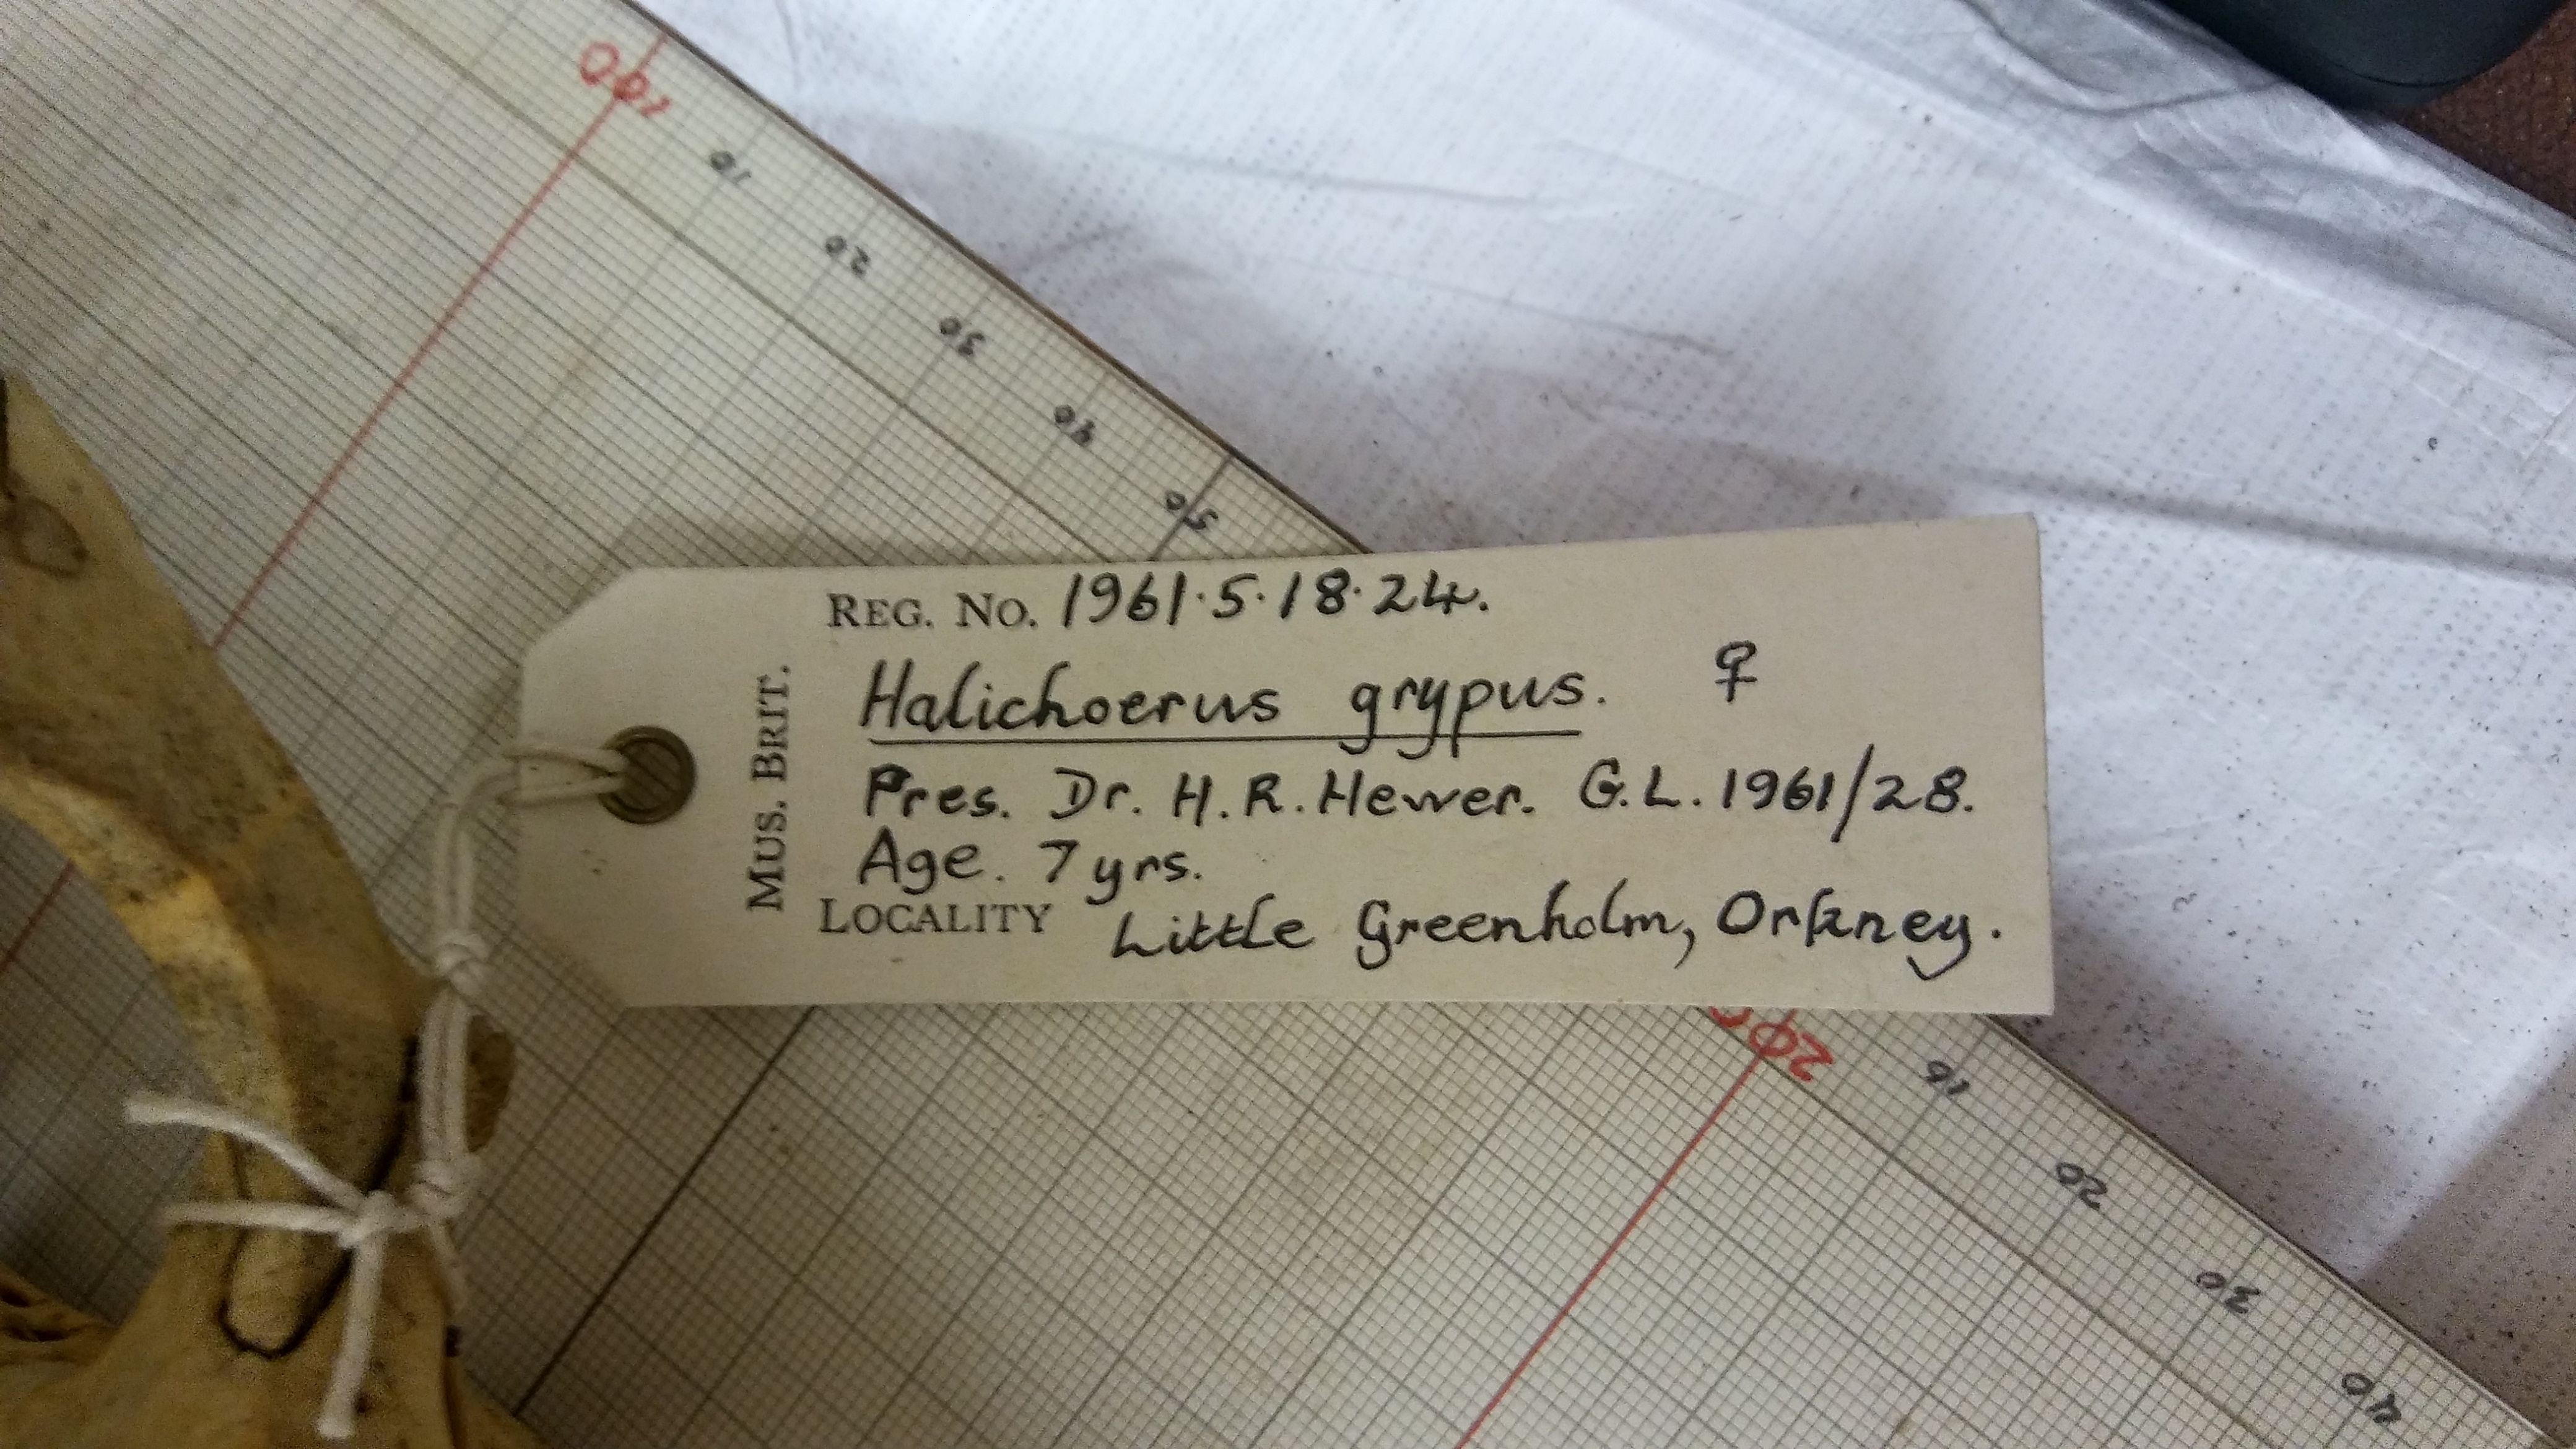 MUS. BRIT.
REG. NO. 1961.5.18.24.
Halichoerus grypus. ♀
Pres. Dr. H.R. Hewer. G.L. 1961/28.
Age. 7 yrs.
LOCALITY Little Greenholm, Orkney.
100
10
20
30
40
50
200
10
20
30
40